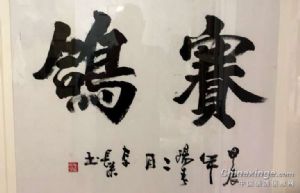 賽鴿
甲辰年陽春二月
Chinaxinge.com
中国信鸽信息网